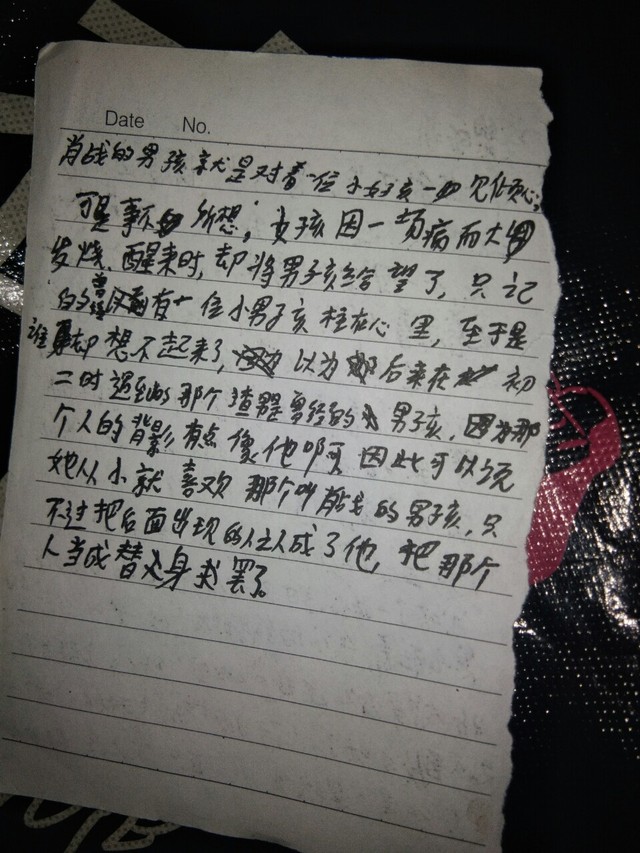 Date No.
肖战的男孩就是对着一位小女孩一见倾心,
可是事不如所想,女孩因一场病而大
发烧,醒来时,却将男孩给望了,只记
的了曾经有一位小男孩柱在心里,至于是
谁却想不起来了,以为后来在初
二时遇到的那个渣男是曾经的男孩,因为那
个人的背影有点像他啊可因此可以说
她从小就喜欢那个叫肖战的男孩,只
不过把后面出现的人当成了他,把那个
人当成替身罢了。